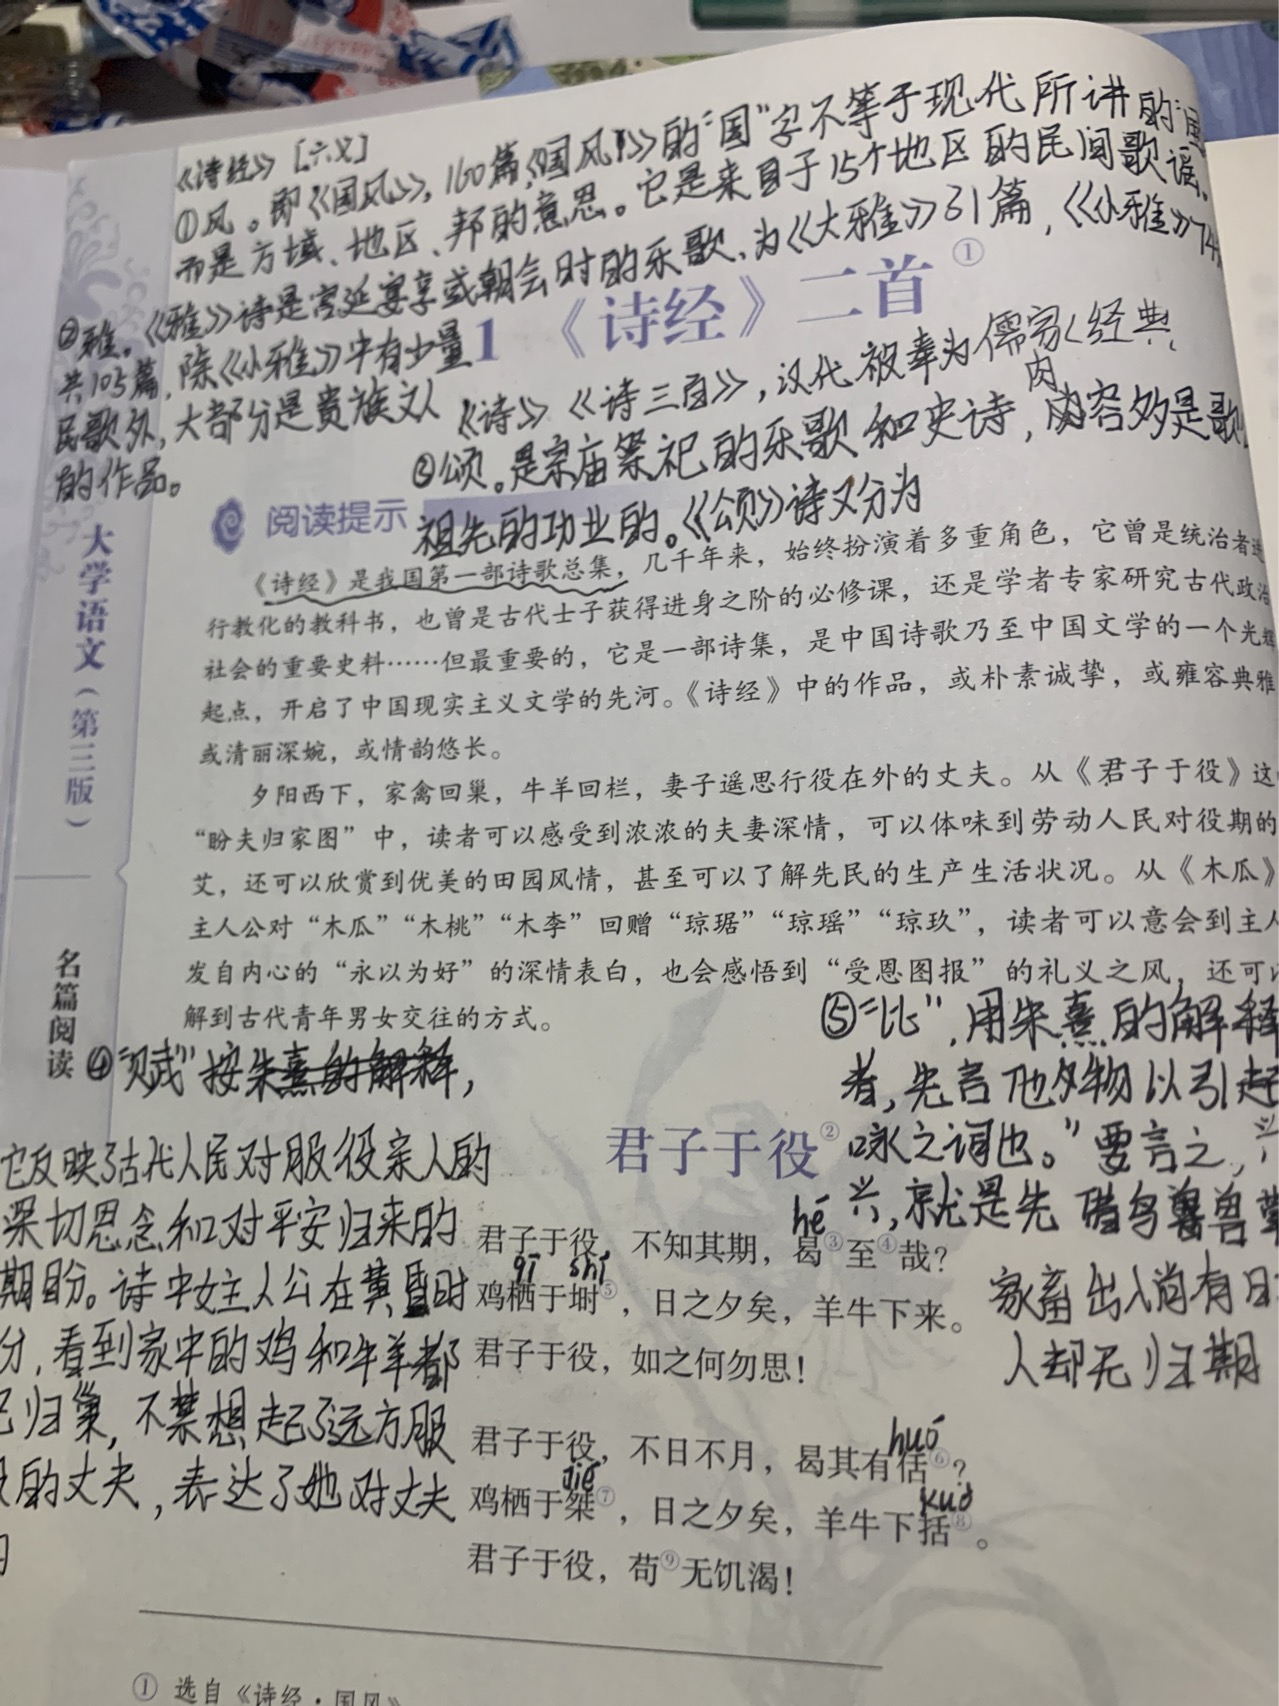 《诗经》［六义］
①风。即《国风》，160篇，《国风》的“国”字不等于现代所讲的“国
而是方域、地区、邦的意思。它是来自于15个地区的民间歌谣。
②雅。《雅》诗是宫延宴享或朝会时的乐歌、为《大雅》31篇，《小雅》74
共105篇，除《小雅》中有少量
民歌外，大部分是贵族文人
的作品。
1 《诗经》二首①
《诗》《诗三百》，汉代被奉为儒家经典
③颂。是宗庙祭祀的乐歌和史诗，内容多是歌
祖先的功业的。《颂》诗又分为
阅读提示
《诗经》是我国第一部诗歌总集，几千年来，始终扮演着多重角色，它曾是统治者进
行教化的教科书，也曾是古代士子获得进身之阶的必修课，还是学者专家研究古代政治
社会的重要史料……但最重要的，它是一部诗集，是中国诗歌乃至中国文学的一个光辉
起点，开启了中国现实主义文学的先河。《诗经》中的作品，或朴素诚挚，或雍容典雅
或清丽深婉，或情韵悠长。
夕阳西下，家禽回巢，牛羊回栏，妻子遥思行役在外的丈夫。从《君子于役》这
“盼夫归家图”中，读者可以感受到浓浓的夫妻深情，可以体味到劳动人民对役期的
艾，还可以欣赏到优美的田园风情，甚至可以了解先民的生产生活状况。从《木瓜》
主人公对“木瓜”“木桃”“木李”回赠“琼琚”“琼瑶”“琼玖”，读者可以意会到主人
发自内心的“永以为好”的深情表白，也会感悟到“受恩图报”的礼义之风，还可以
解到古代青年男女交往的方式。
大学语文（第三版）
名篇阅读
④“赋”按朱熹的解释，
⑤“比”，用朱熹的解释
者，先言他夕物以引起
咏之词也。”要言之，
兴，就是先借鸟兽
家畜出入尚有日
人却无归期
它反映了古代人民对服役亲人的
深切思念和对平安归来的
期盼。诗中女主人公在黄昏时
分，看到家中的鸡和牛羊都
已归巢，不禁想起了远方服
的丈夫，表达了她对丈夫
君子于役②
hé
君子于役，不知其期，曷③至④哉？
qī shí
鸡栖于埘⑤，日之夕矣，羊牛下来。
君子于役，如之何勿思！
huó
君子于役，不日不月，曷其有佸⑥？
jié kuò
鸡栖于桀⑦，日之夕矣，羊牛下括⑧。
君子于役，苟⑨无饥渴！
① 选自《诗经·国风》